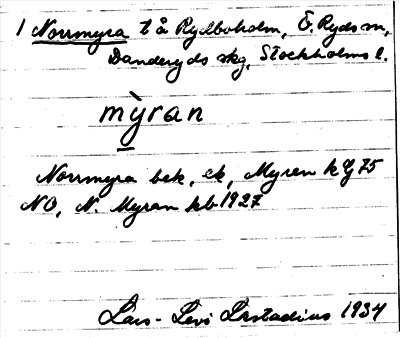 1 Norrmyra t å Rydboholm, Ö. Ryds sn,
Danderyds skg, Stockholms l.
my̍ran
Norrmyra bek, ek, Myren k Gf 75
NO, N. Myran kb 1927
Lars-Levi Læstadius 1934